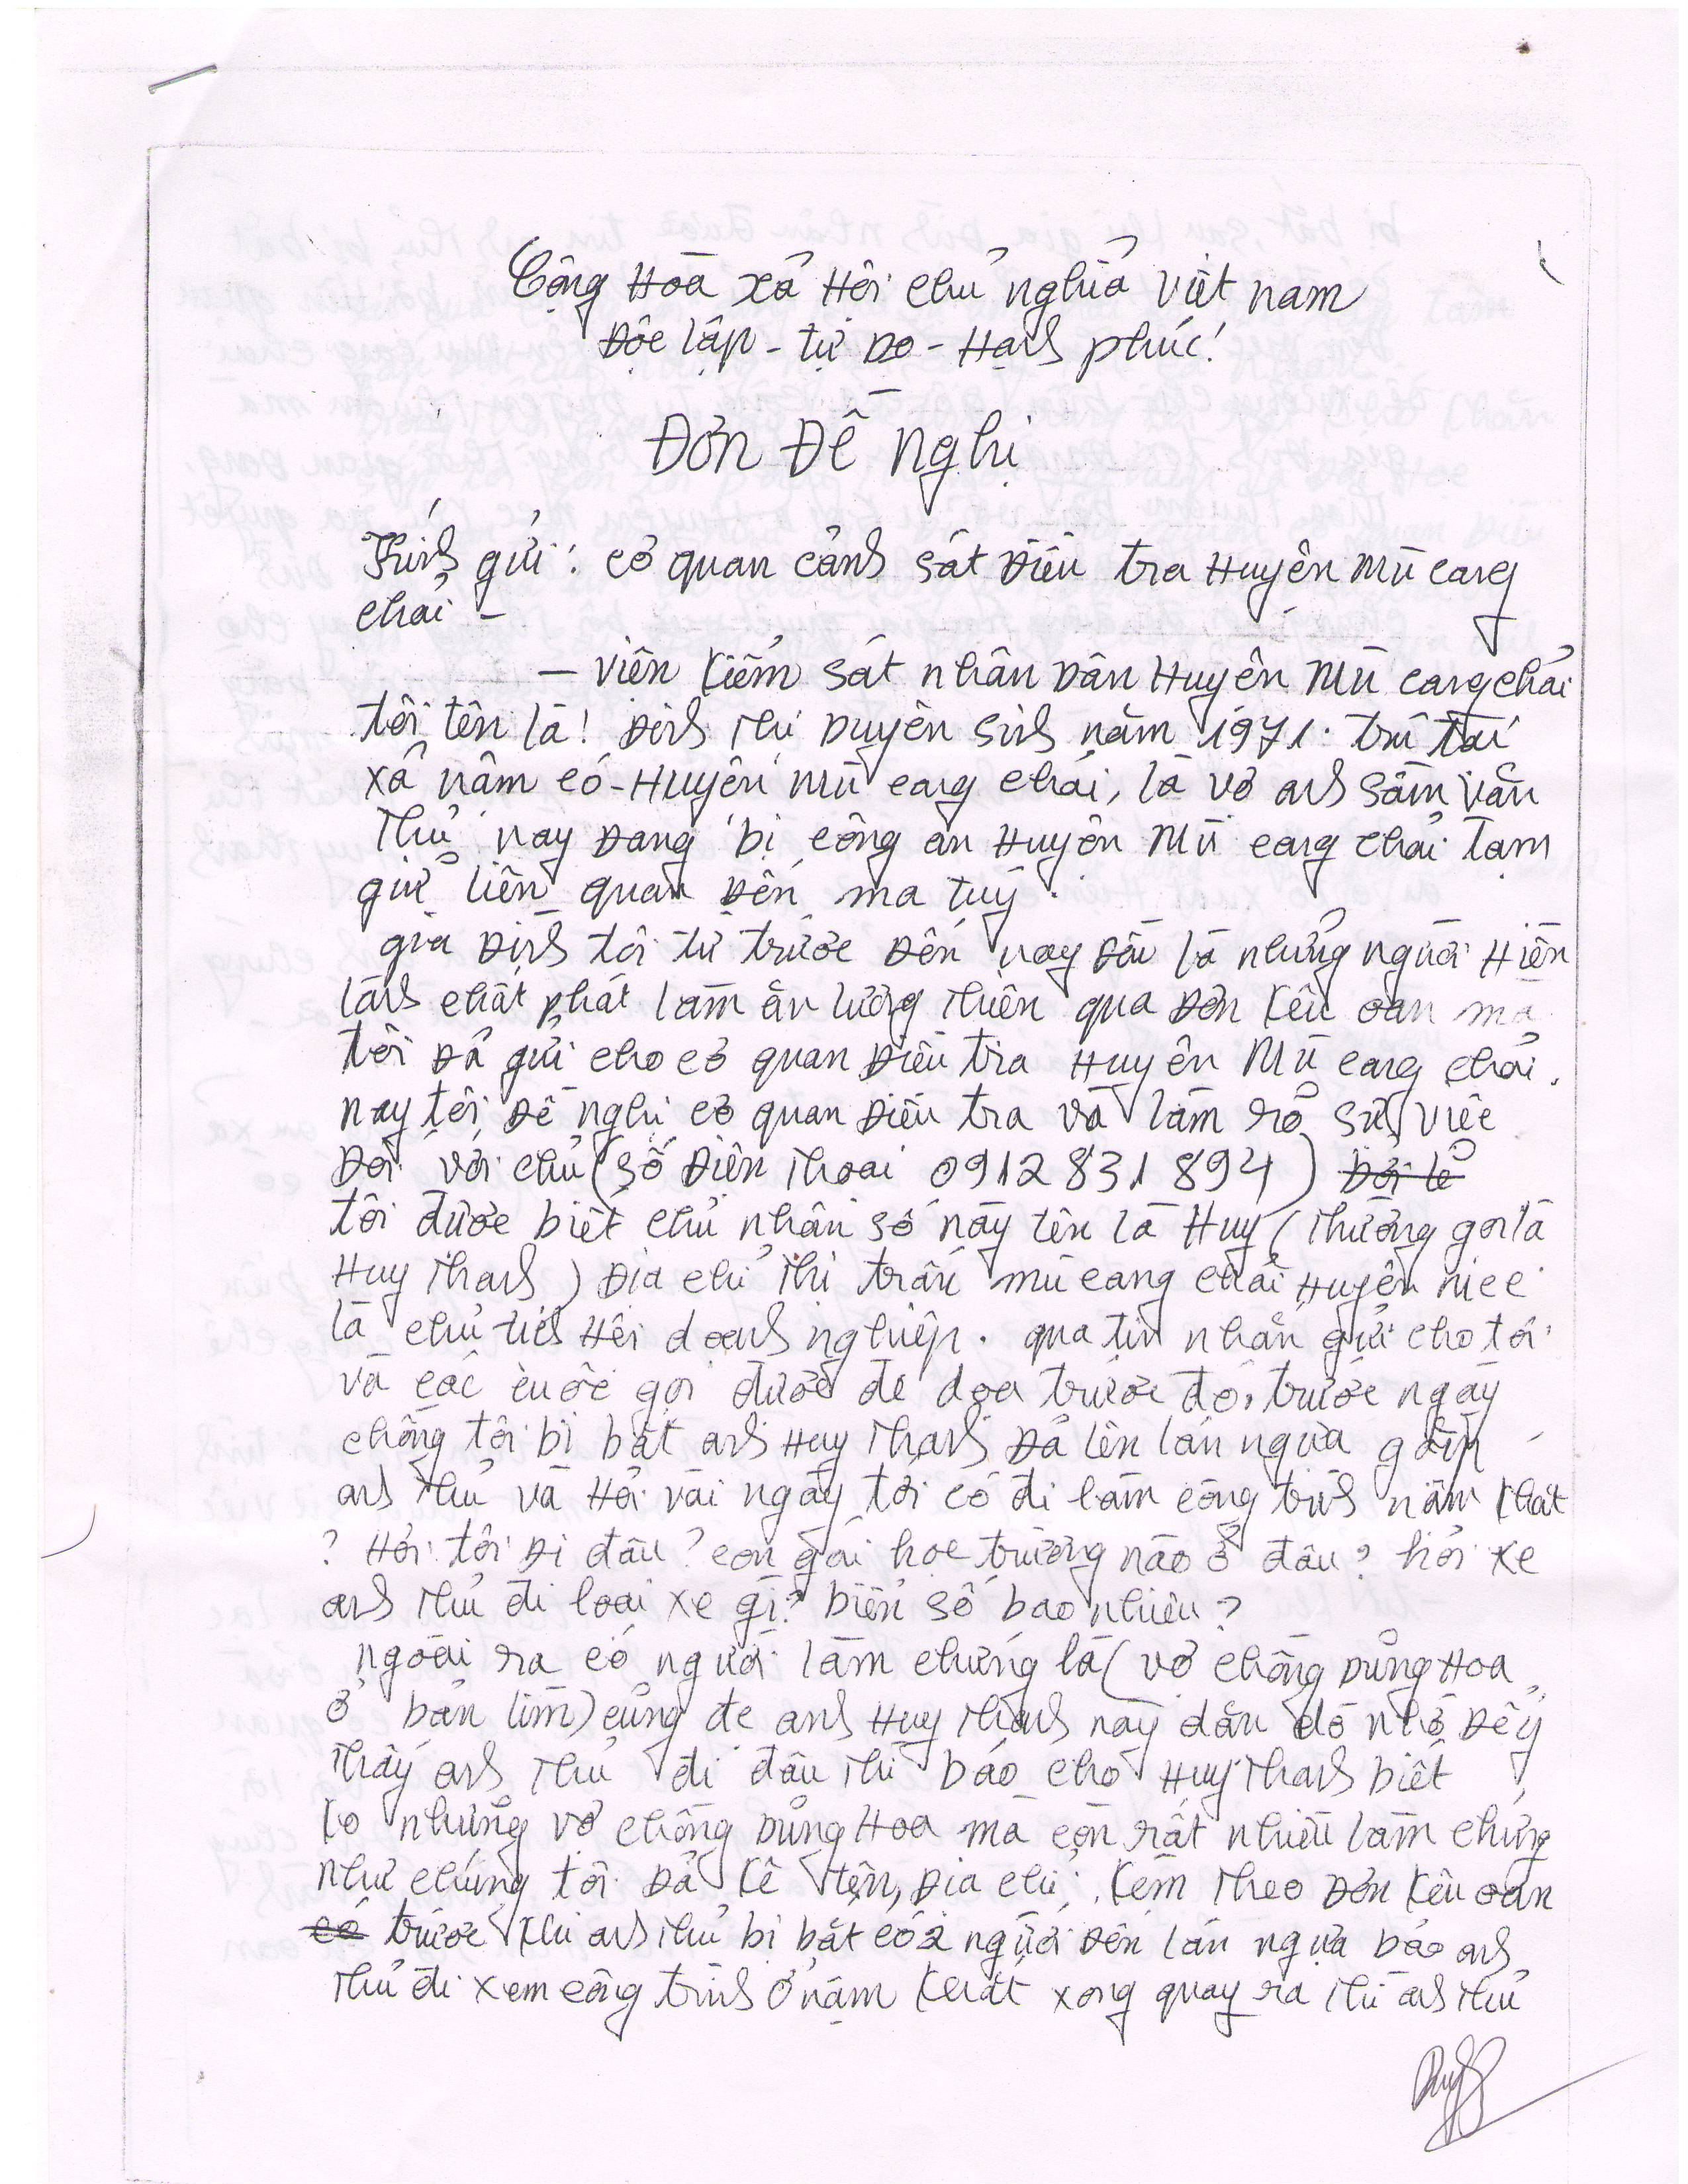 Cộng Hòa xã Hội chủ nghĩa việt nam
Độc lập - tự Do - Hạnh phúc!
Đơn Đề nghị
Kính gửi: cơ quan cảnh sát Điều tra Huyện Mù cang
chải -
- viện kiểm sát nhân Dân Huyện Mù cang chải
tôi tên là! Đinh thị Duyên sinh năm 1971. trú tại
xã nậm có - Huyện Mù cang chải, là vợ anh sầm văn
thủ nay Đang bị công an Huyện Mù cang chải tạm
giữ liên quan Đến ma túy.
gia Đình tôi từ trước Đến nay Đều là những người Hiền
lành chất phát làm ăn lương thiện qua Đơn kêu oan mà
tôi Đã gửi cho cơ quan Điều tra Huyện Mù cang chải.
nay tôi Đề nghị cơ quan Điều tra và làm rõ sự việc
Đối với chủ (số Điện thoại 0912 831 894) bởi lẽ
tôi được biết chủ nhân số này tên là Huy (thường gọi là
Huy thanh) Địa chỉ thị trấn mù cang chải Huyện mcc
là chủ tich Hội doanh nghiệp. qua tin nhắn gửi cho tôi
và các cuộc gọi được đe dọa trước đó, trước ngày
chồng tôi bị bắt anh Huy thanh Đã lên lán ngựa gặp
anh thủ và Hỏi vài ngày tới có đi làm công trình nậm khắt
? Hỏi tôi Đi đâu? con gái học trường nào ở đâu? hỏi xe
anh thủ đi loại xe gì? biển số bao nhiêu?
ngoài ra có người làm chứng là (vợ chồng Dũng Hoa
ở bản lìm) cũng đe anh Huy thanh này dặn dò nhỏ Đêy
thấy anh thủ đi đâu thì báo cho Huy thanh biết
ko những vợ chồng Dũng Hoa mà còn rất nhiều làm chứng
như chúng tôi Đã kê tên, Địa chỉ, kèm theo Đơn kêu oan
có trước khi anh thủ bị bắt có 2 người Đến lán ngựa bảo anh
thủ đi xem công trình ở nậm khắt xong quay ra thì anh thủ